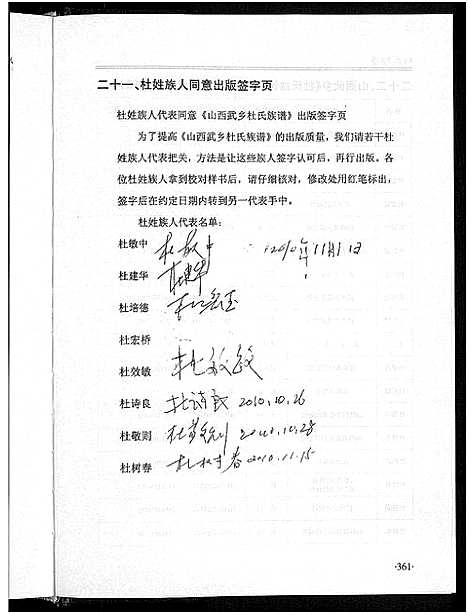 二十一、杜姓族人同意出版签字页
杜姓族人代表同意《山西武乡杜氏族谱》出版签字页
为了提高《山西武乡杜氏族谱》的出版质量，我们请若干杜
姓族人代表把关，方法是让这些族人签字认可后，再行出版。各
位杜姓族人拿到校对样书后，请仔细核对，修改处用红笔标出，
签字后在约定日期内转到另一代表手中。
杜姓族人代表名单：
杜敏中 杜敏中 2010年11月1日
杜建华 杜建华
杜培德
杜宏桥
杜效敏 杜效敏
杜诗良 杜诗良 2010.10.26
杜敬则 杜敬则 2010.10.28
杜树春 杜树春 2010.11.15
·361·